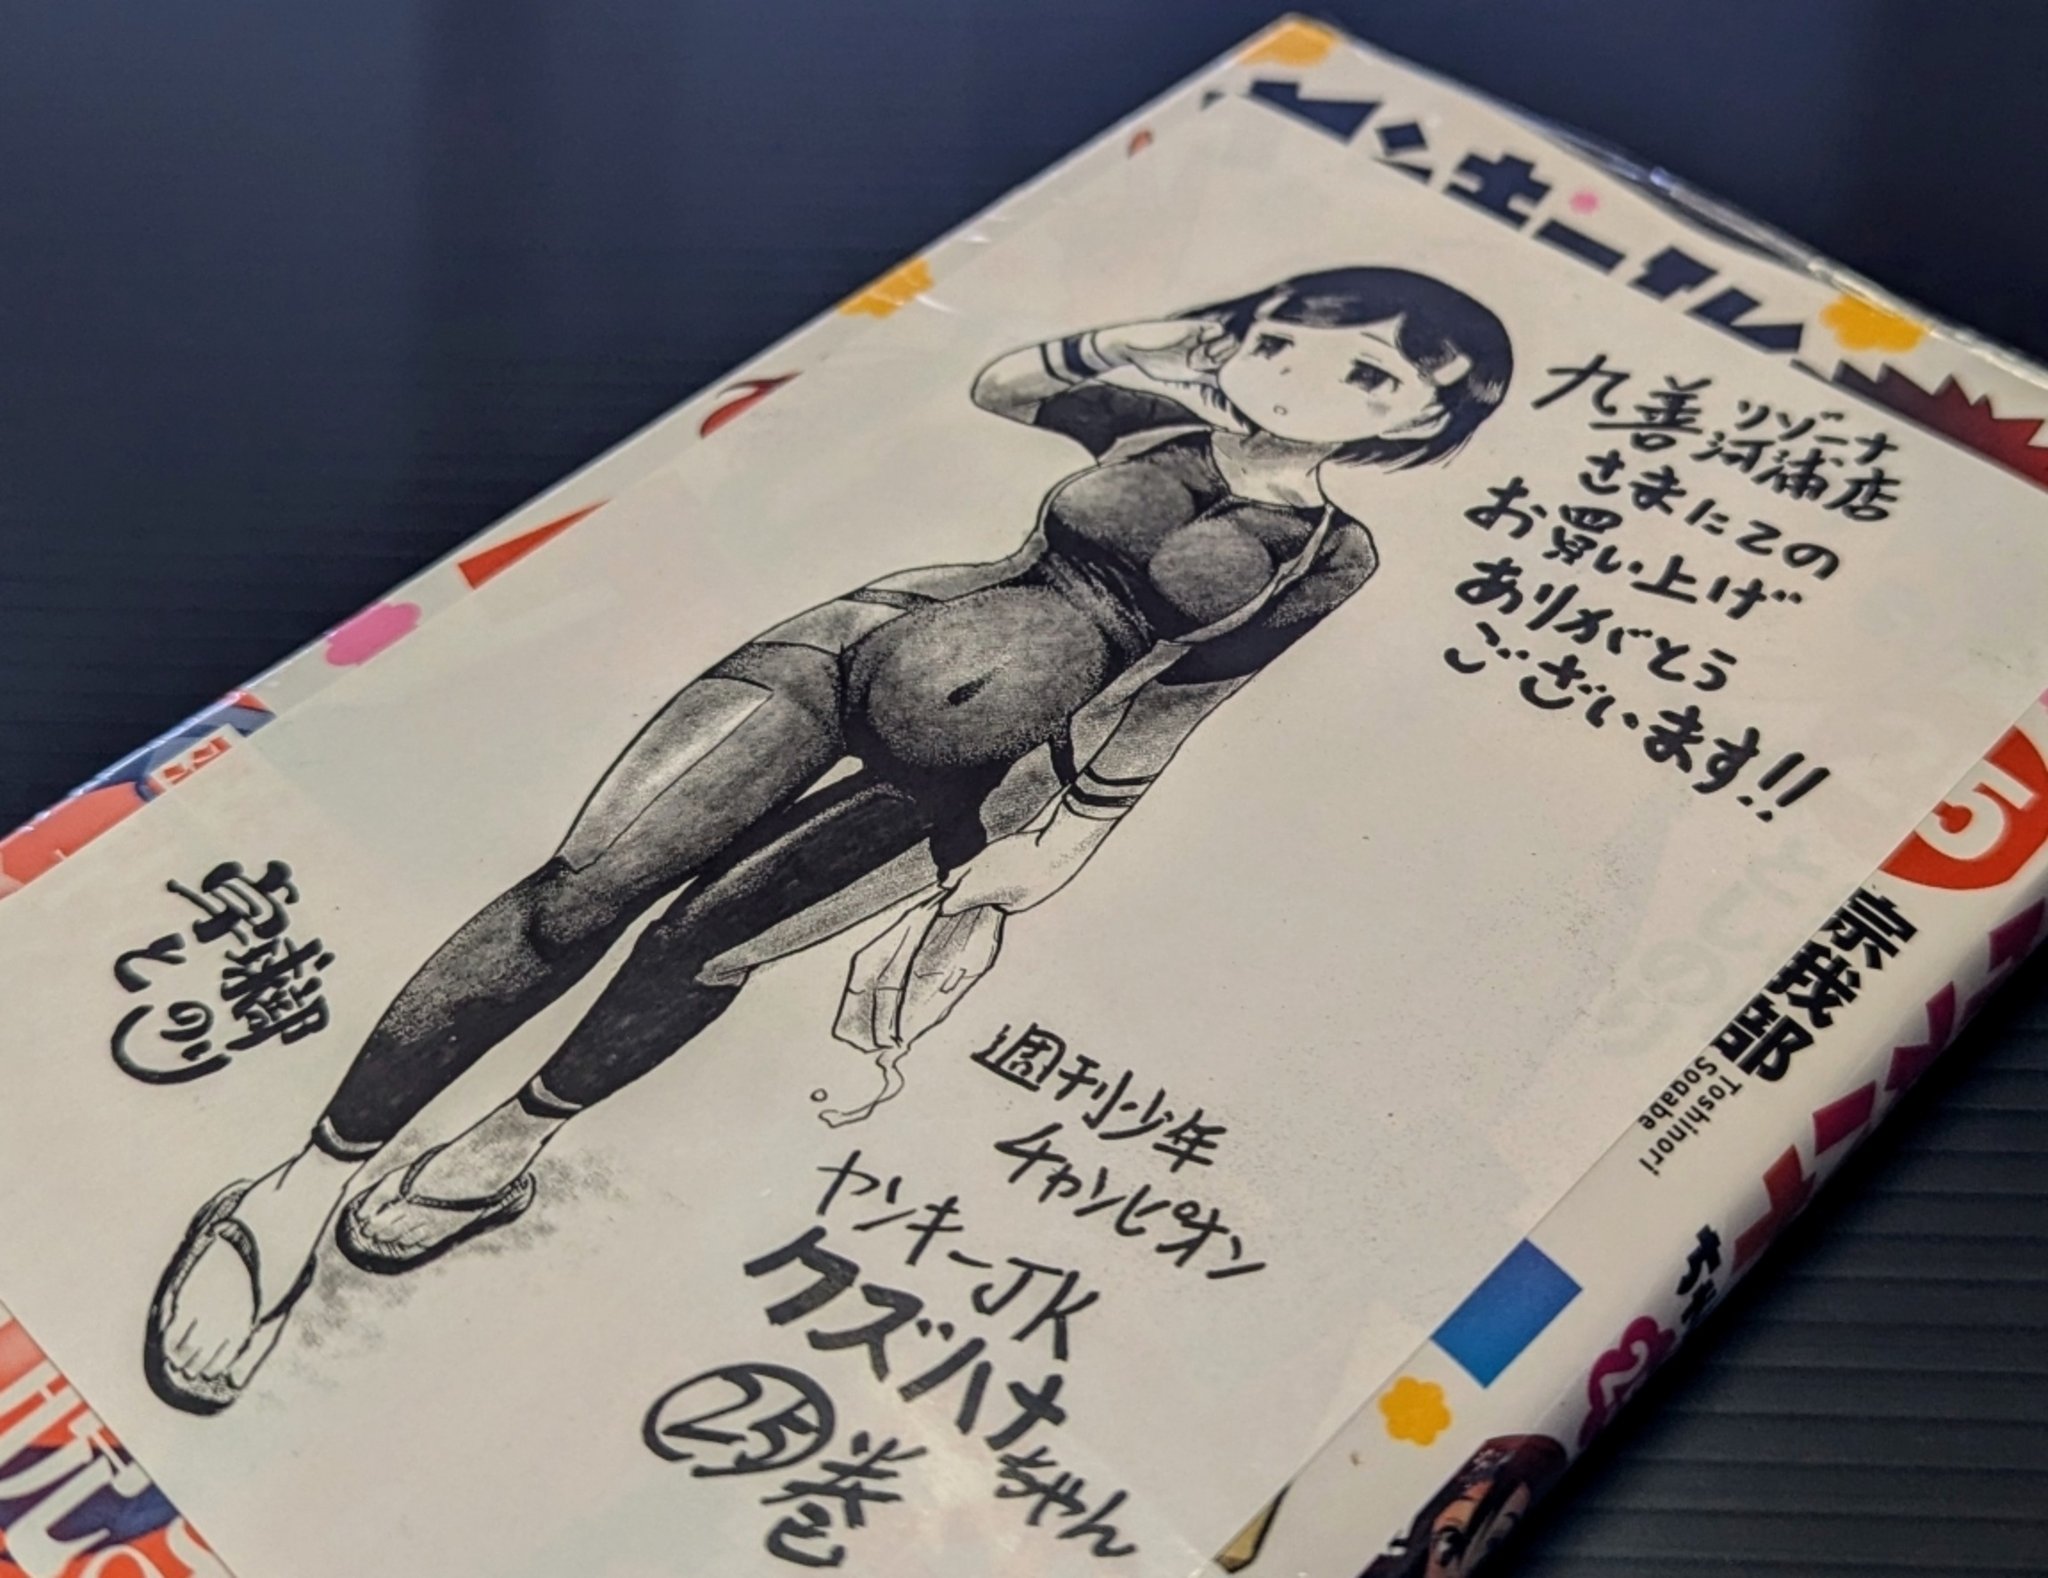 丸善
リゾーナ
河浦店
さまにての
お買い上げ
ありがとう
ございます!!
卓球部
との
週刊少年
チャンピオン
ヤンキーJK
クズハナ
ちゃん
25巻
宗我部
Toshinori
Sogabe